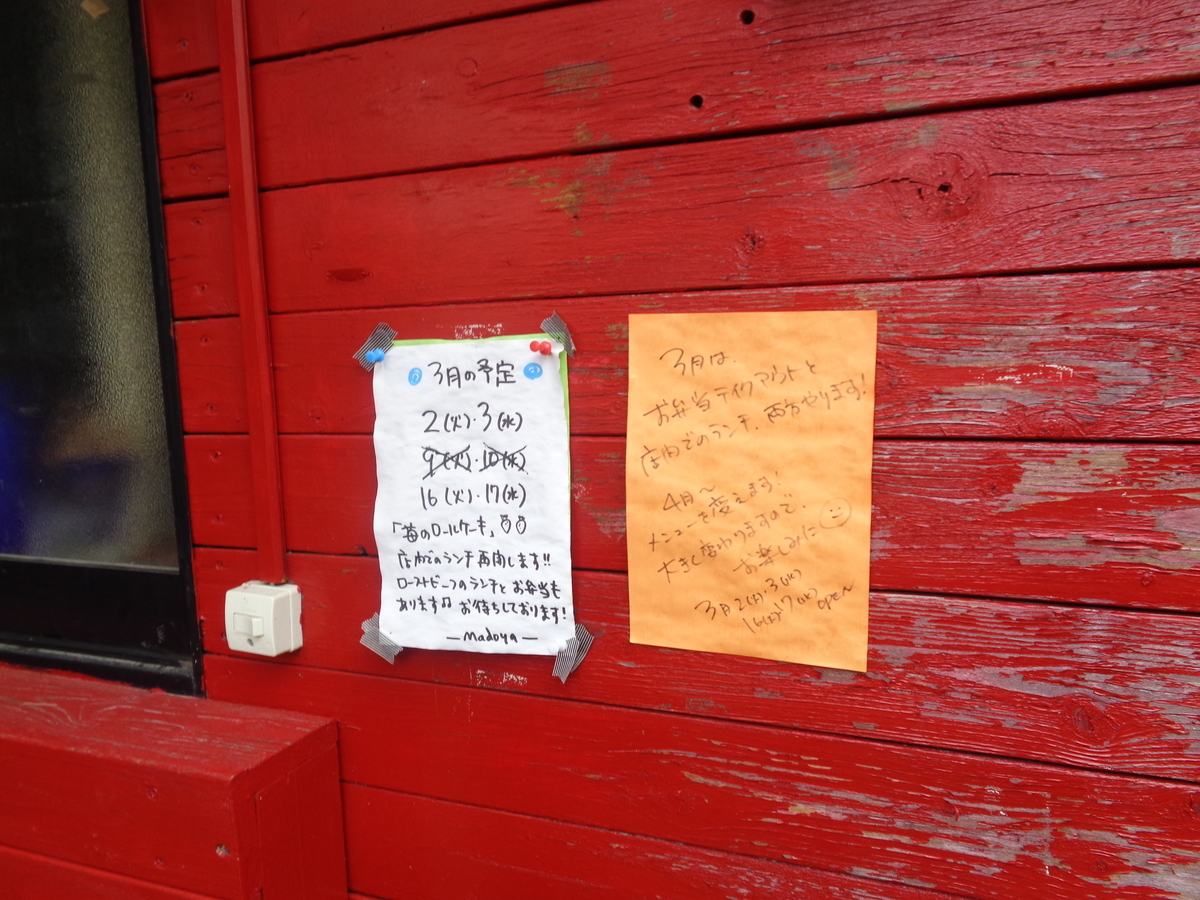 3月の予定
2(火)・3(水)
9(火)・10(水)
16(火)・17(水)
「苺のロールケーキ」
店内でのランチ再開します!!
ローストビーフのランチと お弁当も
あります♫ お待ちしております!
—Madoya—
3月は、
お弁当テイクアウトと
店内でのランチ、両方やります!
4月〜
メニューを変えます!
大きく変わりますので、
お楽しみに
3月2(火)・3(水)
16(火)17(水) open〜